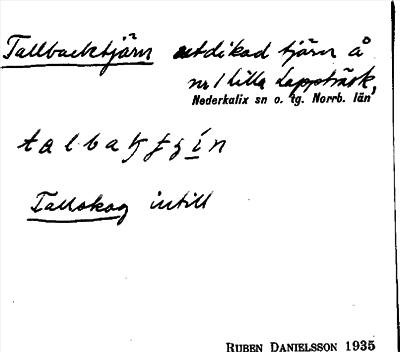 Tallbacktjärn utdikad tjärn å
nr 1 Lilla Lappträsk,
Nederkalix sn o. tg. Norrb. län
Tallskog intill
RUBEN DANIELSSON 1935